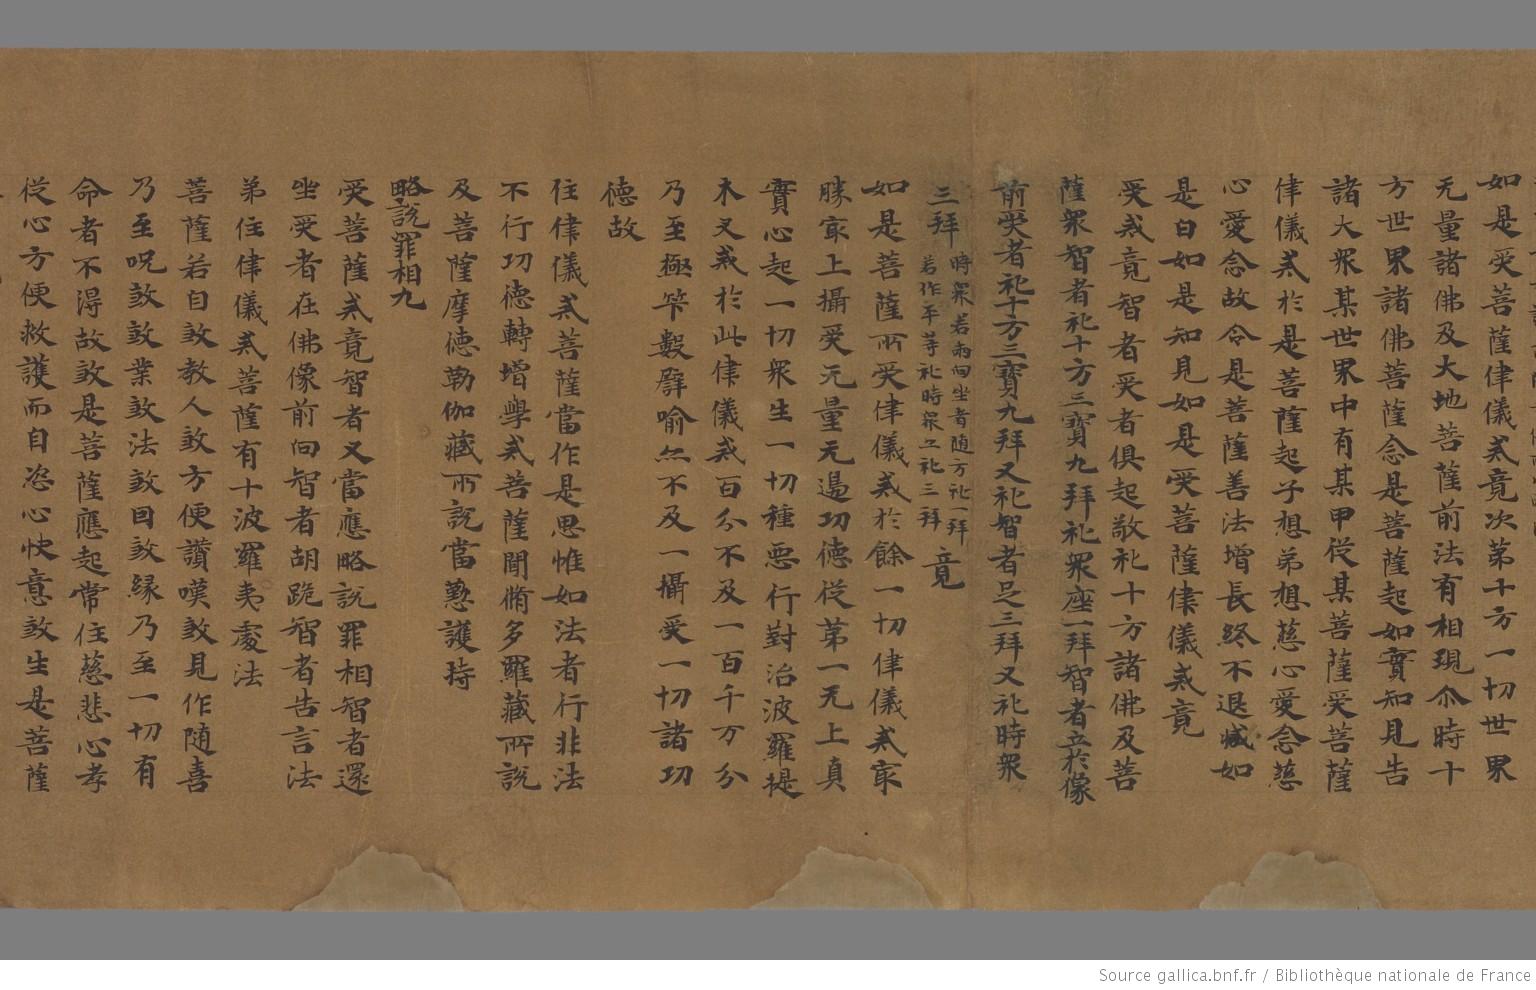 如是受菩薩律儀戒竟次第十方一切世界
无量諸佛及大地菩薩前法有相現尒時十
方世界諸佛菩薩念是菩薩起如實知見告
諸大衆某世界中有某甲從某菩薩受菩薩
律儀戒於是菩薩起子想弟想慈心愛念慈
心愛念故令是菩薩善法增長終不退減如
是白如是知見如是受菩薩律儀戒竟
受戒竟智者受者俱起敬礼十方諸佛及菩
薩衆智者礼十方三寶九拜礼衆座一拜智者立於像
前受者礼十方三寶九拜又礼智者足三拜又礼時衆
三拜 時衆若兩向坐者随方礼一拜
若作平等礼時衆亦礼三拜 竟
如是菩薩所受律儀戒於餘一切律儀戒㝡
勝㝡上攝受无量无邊功德從第一无上真
實心起一切衆生一切種惡行對治波羅提
木叉戒於此律儀戒百分不及一百千万分
乃至極筭數譬喻亦不及一攝受一切諸功
德故
住律儀戒菩薩當作是思惟如法者行非法
不行功德轉增學戒菩薩聞脩多羅藏所說
及菩薩摩德勒伽藏所說當懃護持
略說罪相九
受菩薩戒竟智者又當應略說罪相智者還
坐受者在佛像前向智者胡跪智者告言法
弟住律儀戒菩薩有十波羅夷處法
菩薩若自煞教人煞方便讚嘆煞見作随喜
乃至呪煞煞業煞法煞因煞緣乃至一切有
命者不得故煞是菩薩應起常住慈悲心孝
從心方便救護而自恣心快意煞生是菩薩
Source gallica.bnf.fr / Bibliothèque nationale de France